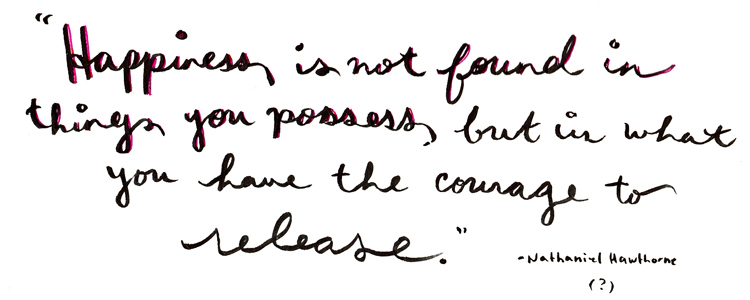 "Happiness is not found in
things you possess, but in what
you have the courage to
release."
-Nathaniel Hawthorne
(?)